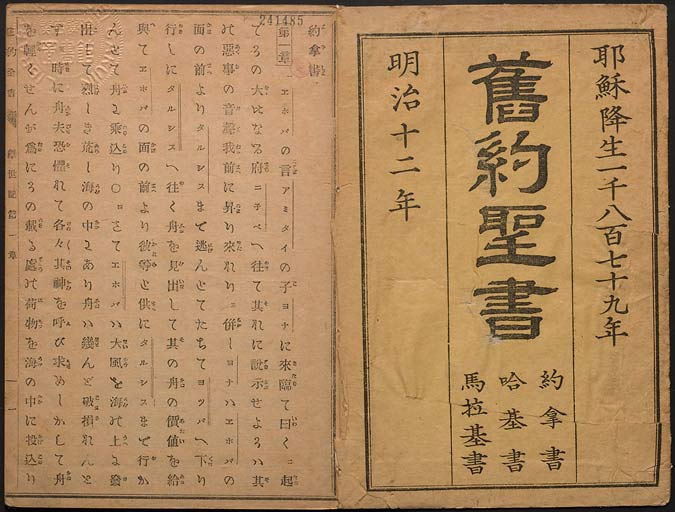 耶穌降生一千八百七十九年
舊約聖書
約拿書
哈基書
馬拉基書
明治十二年
241485
約拿書
第一章
エホバの言アミタイの子ヨナに來臨て曰く 起
てかの大なる府ニチベへ往て其れに說示せよ 其
惡事の音聲我前に昇り來れり 併しヨナハエホバの
面の前よりタルシスまで逃んとてたちてヨツパへ下り
行しにタルシスへ往く舟を見出して其の舟の價値を給
與てエホバの面の前より彼等と供にタルシスまで行か
んとて舟に乘込り〇さてエホバハ大風を海の上に發
出して烈しき荒し海の中にあり舟ハ幾んど破損れんと
時に舟夫恐懼れて各々其神を呼び求めしかして舟
を輕くせんが爲にその載る處の荷物を海の中に投込り